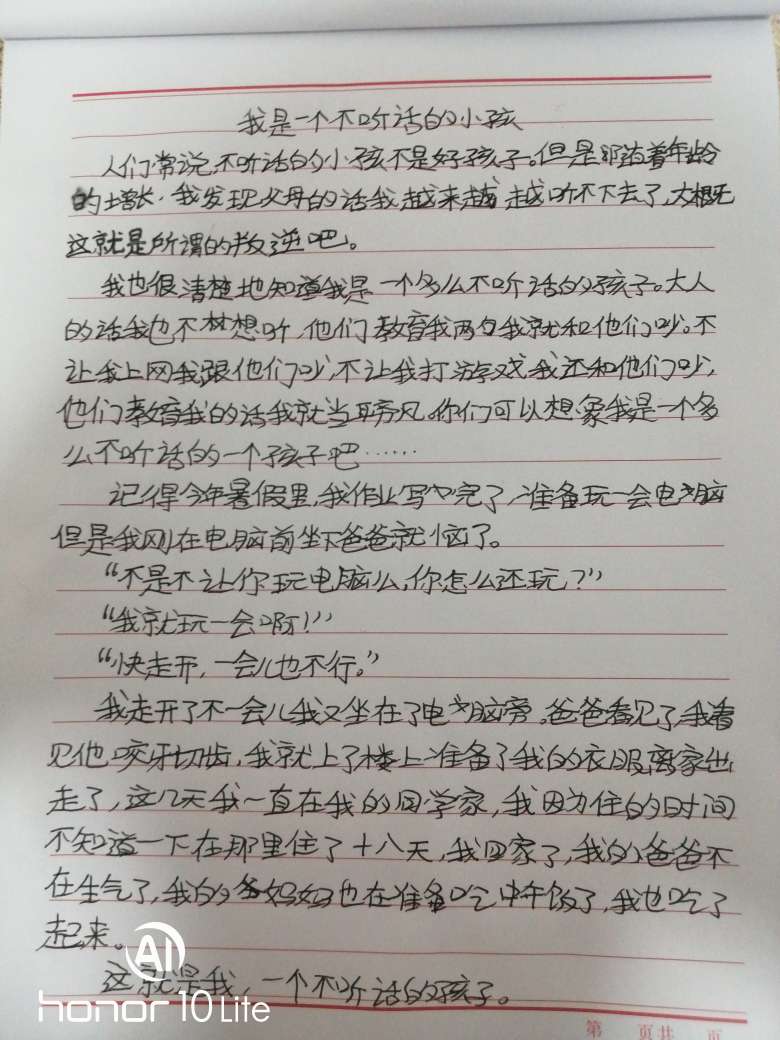 我是一个不听话的小孩
人们常说,不听话的小孩不是好孩子。但是随着年龄
的增长,我发现父母的话我越来越越听不下去了,大概
这就是所谓的叛逆吧。
我也很清楚地知道我是一个多么不听话的孩子。大人
的话我也不想听,他们教育我两句我就和他们吵。不
让我上网我跟他们吵,不让我打游戏我还和他们吵,
他们教育我的话我就当耳旁风。你们可以想象我是一个多
么不听话的一个孩子吧……
记得今年暑假里,我作业写完了,准备玩一会电脑
但是我刚在电脑前坐下爸爸就恼了。
“不是不让你玩电脑么,你怎么还玩?”
“我就玩一会啊!”
“快走开,一会儿也不行。”
我走开了不一会儿我又坐在了电脑旁。爸爸看见了,我看
见他咬牙切齿,我就上了楼上准备了我的衣服离家出
走了,这几天我一直在我的同学家,我因为住的时间
不知道一下在那里住了十八天,我回家了,我的爸爸不
在生气了,我的妈妈也在准备吃中午饭了,我也吃了
起来。
这就是我,一个不听话的孩子。
AI
honor 10 Lite
第 页共 页